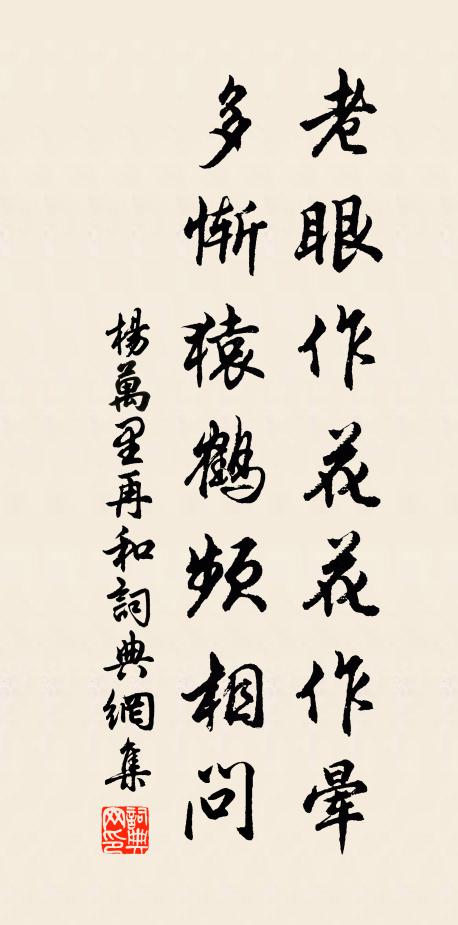 老眼作花花作暈
多慚猿鶴頻相問
楊萬里再和詞典網集
詞典网印